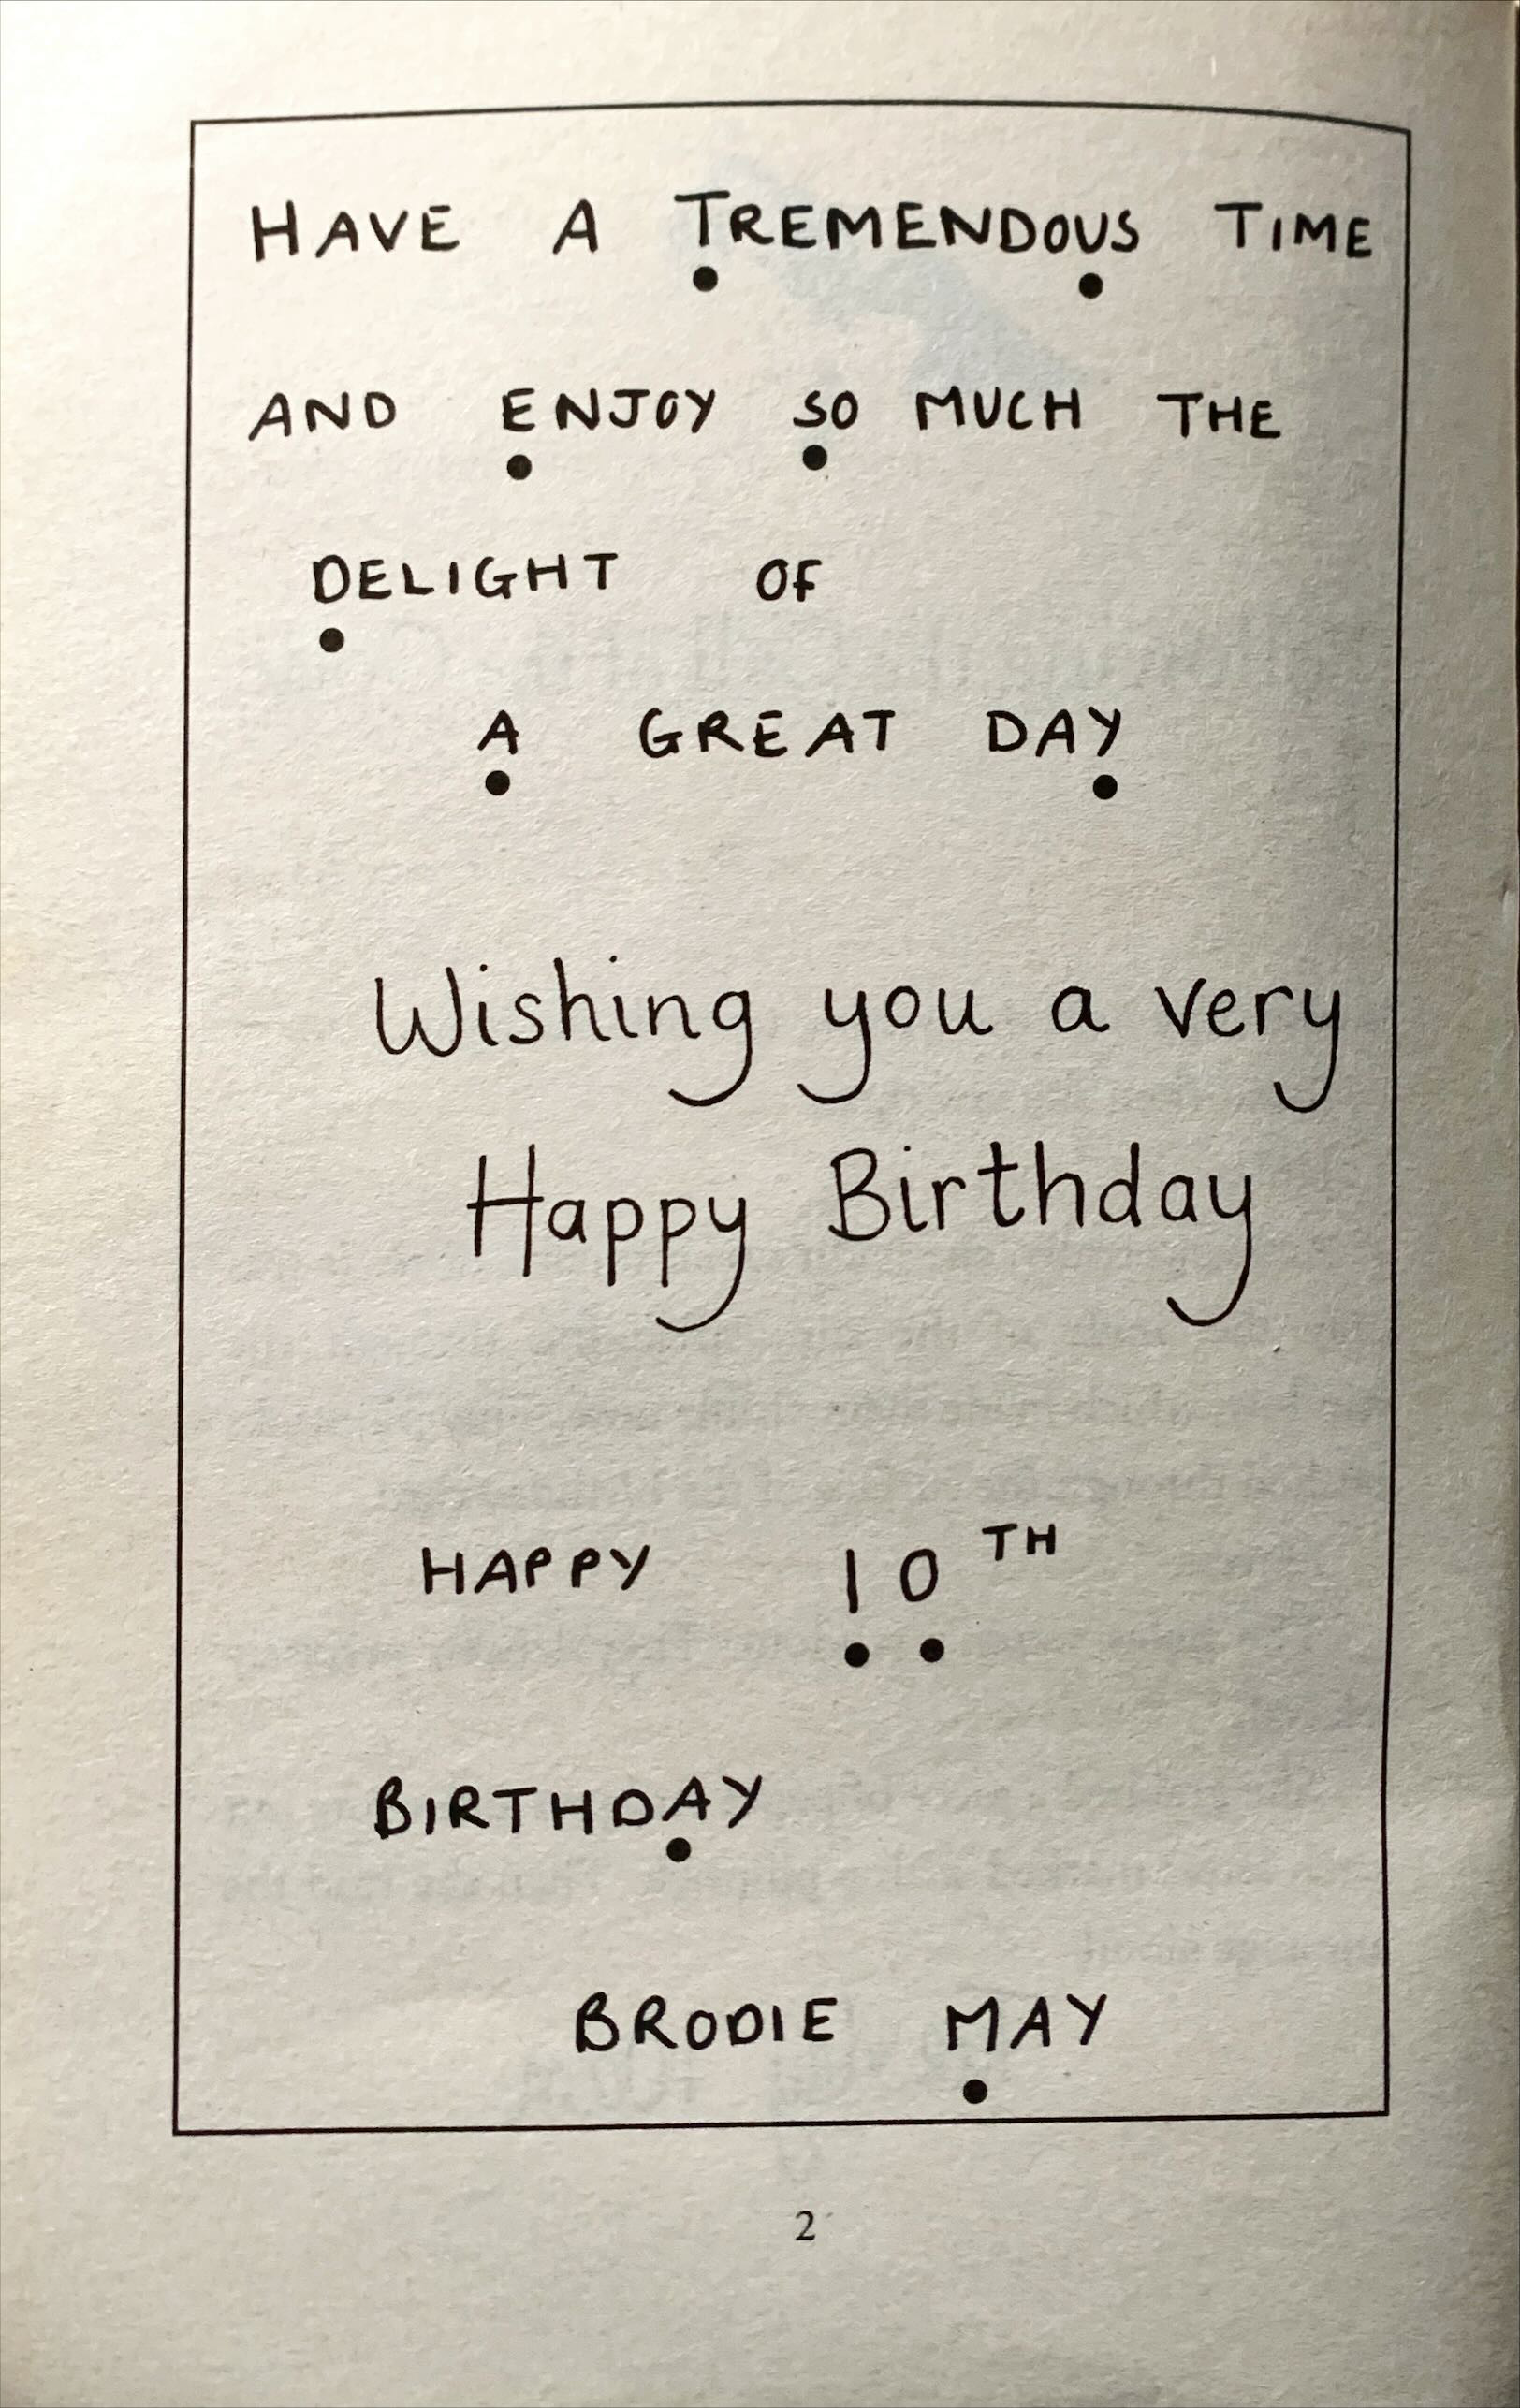 HAVE A TREMENDOUS TIME
AND ENJOY SO MUCH THE
DELIGHT OF
A GREAT DAY
Wishing you a very
Happy Birthday
HAPPY 10TH
BIRTHDAY
BRODIE MAY
2